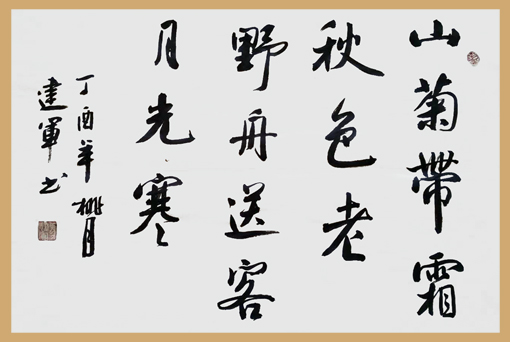 山菊帶霜
秋色老
野舟送客
月光寒
丁酉年桃月
建軍书